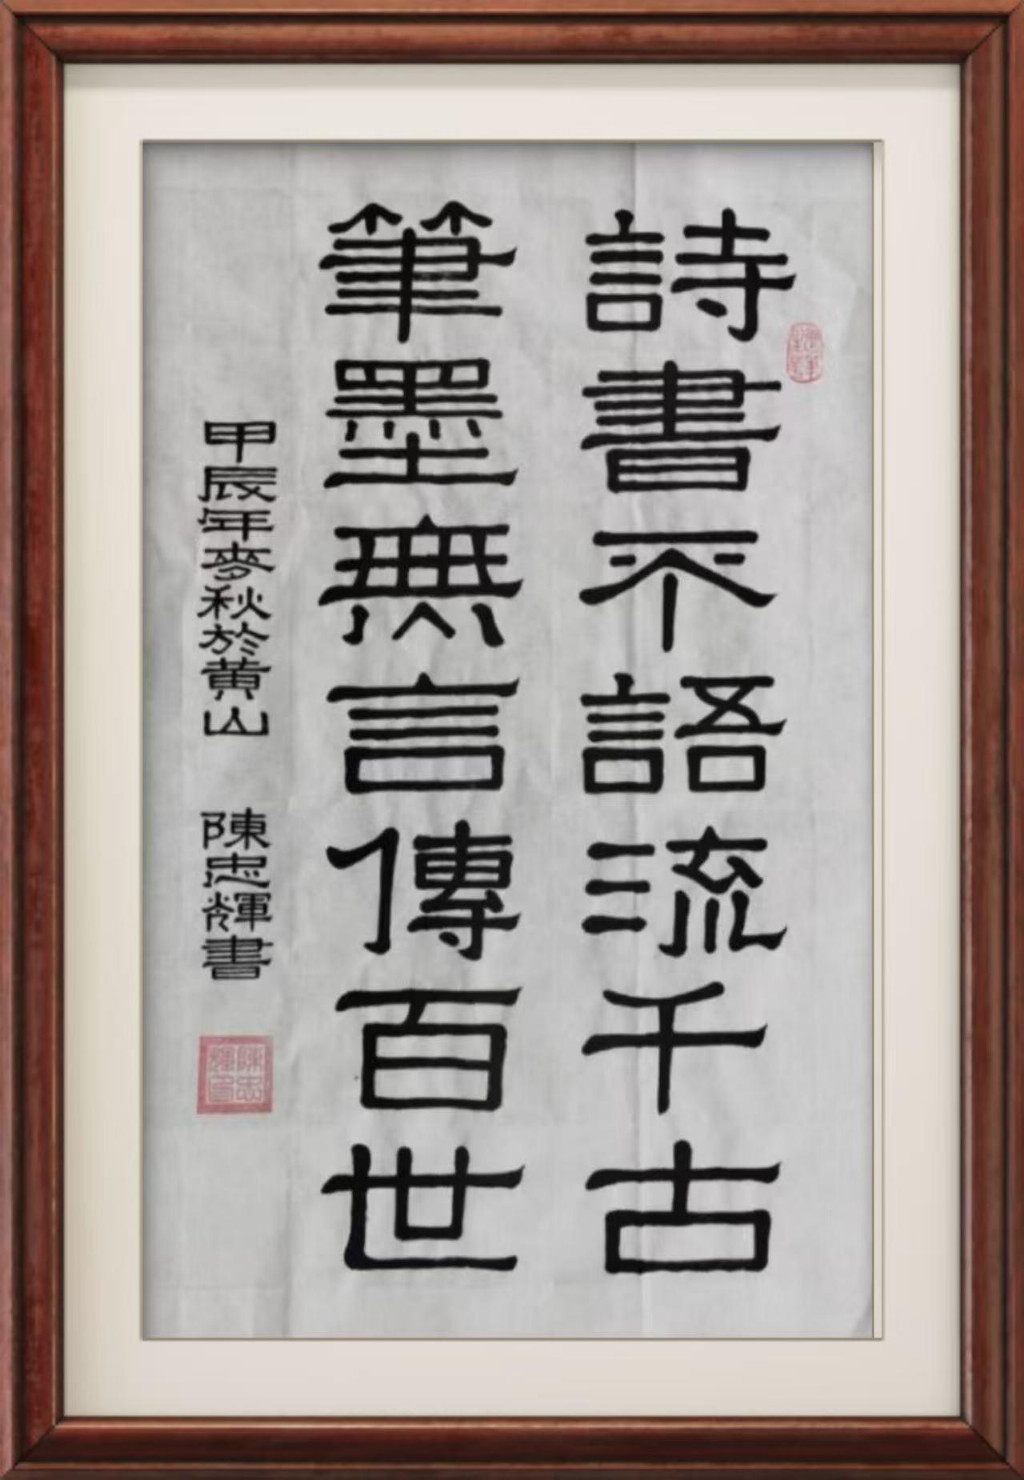 詩書不語流千古
筆墨無言傳百世
甲辰年麥秋於黄山 陳忠輝書